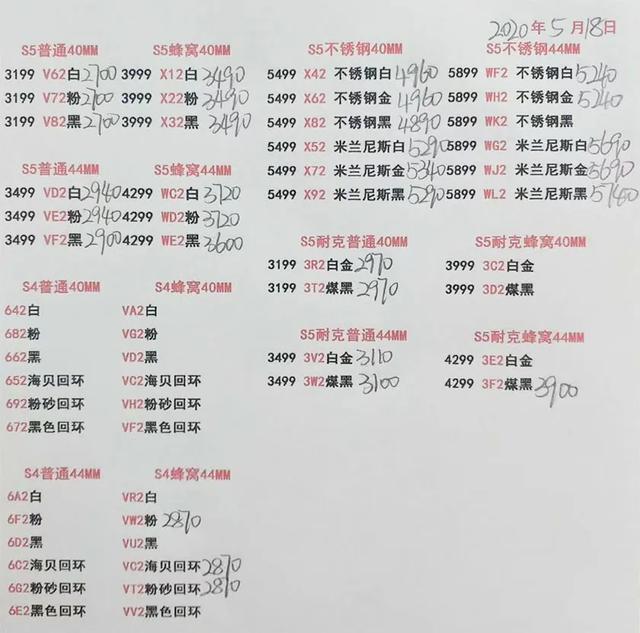 2020年5月18日
S5普通40MM
3199 V62白2700
3199 V72粉2700
3199 V82黑2700
S5蜂窝40MM
3999 X12白3490
3999 X22粉3490
3999 X32黑3490
S5不锈钢40MM
5499 X42 不锈钢白4960
5499 X62 不锈钢金4960
5499 X82 不锈钢黑4890
5499 X52 米兰尼斯白5290
5499 X72 米兰尼斯金5340
5499 X92 米兰尼斯黑5290
S5不锈钢44MM
5899 WF2 不锈钢白5240
5899 WH2 不锈钢金5240
5899 WK2 不锈钢黑
5899 WG2 米兰尼斯白5690
5899 WJ2 米兰尼斯金5690
5899 WL2 米兰尼斯黑5740
S5普通44MM
3499 VD2白2940
3499 VE2粉2940
3499 VF2黑2900
S5蜂窝44MM
4299 WC2白3720
4299 WD2粉3720
4299 WE2黑3600
S5耐克普通40MM
3199 3R2白金2970
3199 3T2煤黑2970
S5耐克蜂窝40MM
3999 3C2白金
3999 3D2煤黑
S4普通40MM
642白
682粉
662黑
652海贝回环
692粉砂回环
672黑色回环
S4蜂窝40MM
VA2白
VG2粉
VD2黑
VC2海贝回环
VH2粉砂回环
VF2黑色回环
S5耐克普通44MM
3499 3V2白金3110
3499 3W2煤黑3100
S5耐克蜂窝44MM
4299 3E2白金
4299 3F2煤黑3900
S4普通44MM
6A2白
6F2粉
6D2黑
6C2海贝回环
6G2粉砂回环
6E2黑色回环
S4蜂窝44MM
VR2白
VW2粉2870
VU2黑
VC2海贝回环2870
VT2粉砂回环2870
VV2黑色回环